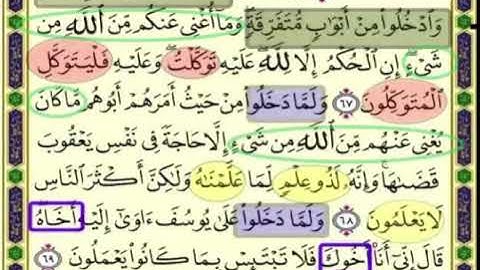 وَٱدْخُلُوا۟ مِنْ أَبْوَٰبٍ مُّتَفَرِّقَةٍ ۖ وَمَآ أُغْنِى عَنكُم مِّنَ ٱللَّهِ مِن
شَىْءٍ ۖ إِنِ ٱلْحُكْمُ إِلَّا لِلَّهِ ۖ عَلَيْهِ تَوَكَّلْتُ ۖ وَعَلَيْهِ فَلْيَتَوَكَّلِ
ٱلْمُتَوَكِّلُونَ ٦٧ وَلَمَّا دَخَلُوا۟ مِنْ حَيْثُ أَمَرَهُمْ أَبُوهُم مَّا كَانَ
يُغْنِى عَنْهُم مِّنَ ٱللَّهِ مِن شَىْءٍ إِلَّا حَاجَةً فِى نَفْسِ يَعْقُوبَ
قَضَىٰهَا ۚ وَإِنَّهُۥ لَذُو عِلْمٍ لِّمَا عَلَّمْنَٰهُ وَلَٰكِنَّ أَكْثَرَ ٱلنَّاسِ
لَا يَعْلَمُونَ ٦٨ وَلَمَّا دَخَلُوا۟ عَلَىٰ يُوسُفَ ءَاوَىٰٓ إِلَيْهِ أَخَاهُ ۖ
قَالَ إِنِّىٓ أَنَا۠ أَخُوكَ فَلَا تَبْتَئِسْ بِمَا كَانُوا۟ يَعْمَلُونَ ٦٩